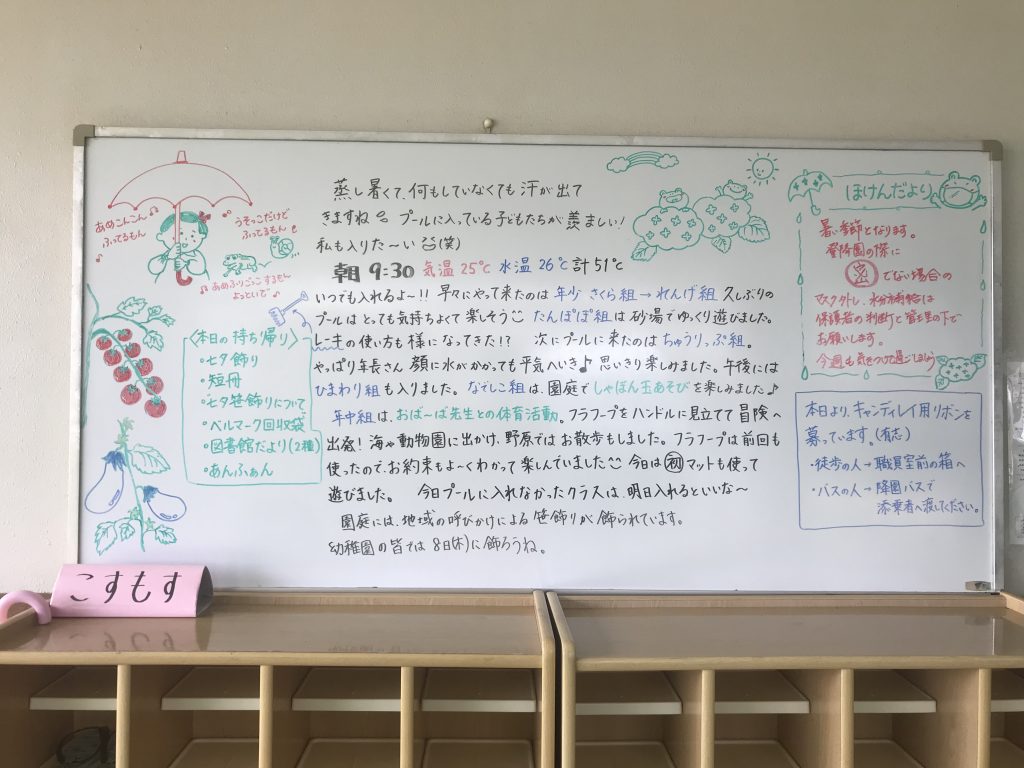 あめこんこん
ふってるもん
うそっこだけど
ふってるもん
あめふりごっこするもん
よっといで
〈本日の持ち帰り〉
・七夕飾り
・短冊
・七夕笹飾りについて
・ベルマーク回収袋
・図書館だより(2種)
・あんふぁん
蒸し暑くて、何もしていなくても汗が出て
きますね プールに入っている子どもたちが羨ましい!
私も入りた〜い(笑)
朝 9:30 気温 25℃ 水温 26℃ 計51℃
いつでも入れるよ〜!! 早々にやって来たのは 年少 さくら組→れんげ組 久しぶりの
プールはとっても気持ちよくて楽しそう たんぽぽ組は砂場でゆっくり遊びました。
レーキの使い方も様になってきた!? 次にプールに来たのはちゅうりっぷ組。
やっぱり年長さん 顔に水がかかっても平気へいき♪ 思いきり楽しみました。午後には
ひまわり組も入りました。なでしこ組は、園庭でしゃぼん玉あそびを楽しみました♪
年中組は、おば〜ば先生との体育活動。フラフープをハンドルに見立てて冒険へ
出発! 海や動物園に出かけ、野原ではお散歩もしました。フラフープは前回も
使ったので、お約束もよ〜くわかって楽しんでいました 今日は初マットも使って
遊びました。 今日プールに入れなかったクラスは、明日入れるといいな〜
園庭には、地域の呼びかけによる笹飾りが飾られています。
幼稚園の皆では8日(木)に飾ろうね。
ほけんだより
暑い季節となります。
登降園の際に
密でない場合の
マスク外し、水分補給は
保護者の判断と管理の下で
お願いします。
今週も気をつけて過ごしましょう
本日より、キャンディレイ用リボンを
募っています。(有志)
・徒歩の人→職員室前の箱へ
・バスの人→降園バスで
添乗者へ渡してください。
こすもす